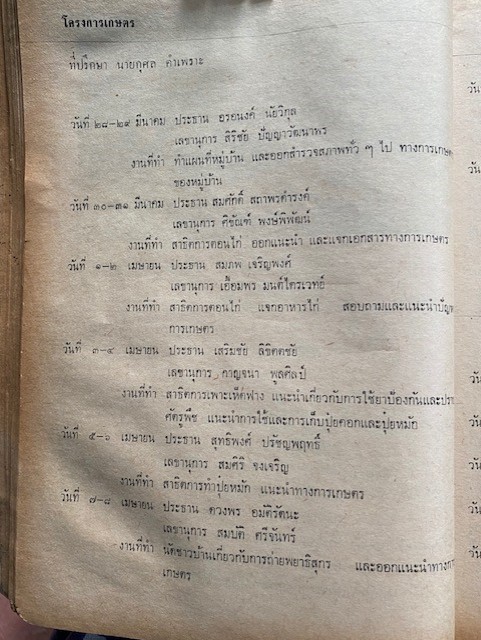 โครงการเกษตร
ที่ปรึกษา นายกุศล คำเพราะ
วันที่ ๒๘-๒๙ มีนาคม ประธาน อรอนงค์ นัยวิกุล
เลขานุการ สิริชัย ปัญญาวัฒนาพร
งานที่ทำ ทำแผนที่หมู่บ้าน และออกสำรวจสภาพทั่ว ๆ ไป ทางการเกษตร
ของหมู่บ้าน
วันที่ ๓๐-๓๑ มีนาคม ประธาน สมศักดิ์ สถาพรดำรงค์
เลขานุการ ศิขัณฑ์ พงษ์พิพัฒน์
งานที่ทำ สาธิตการตอนไก่ ออกแนะนำ และแจกเอกสารทางการเกษตร
วันที่ ๑-๒ เมษายน ประธาน สมภพ เจริญพงศ์
เลขานุการ เอื้อมพร มนต์ไตรเวทย์
งานที่ทำ สาธิตการตอนไก่ แจกอาหารไก่ สอบถามและแนะนำ
การเกษตร
วันที่ ๓-๔ เมษายน ประธาน เสริมชัย ลิขิตตชัย
เลขานุการ กาญจนา พูลศิลป์
งานที่ทำ สาธิตการเพาะเห็ดฟาง แนะนำเกี่ยวกับการใช้ยาป้องกันและ
ศัตรูพืช แนะนำการใช้และการเก็บปุ๋ยคอกและปุ๋ยหมัก
วันที่ ๕-๖ เมษายน ประธาน สุทธิพงศ์ ปรัชญพฤทธิ์
เลขานุการ สมศิริ จงเจริญ
งานที่ทำ สาธิตการทำปุ๋ยหมัก แนะนำทางการเกษตร
วันที่ ๗-๘ เมษายน ประธาน ดวงพร อมัติรัตนะ
เลขานุการ สมบัติ ศรีจันทร์
งานที่ทำ นัดชาวบ้านเกี่ยวกับการถ่ายพยาธิสุกร และออกแนะนำทางการ
เกษตร
วัน
วัน
วัน
วัน
วัน
วัน
วัน